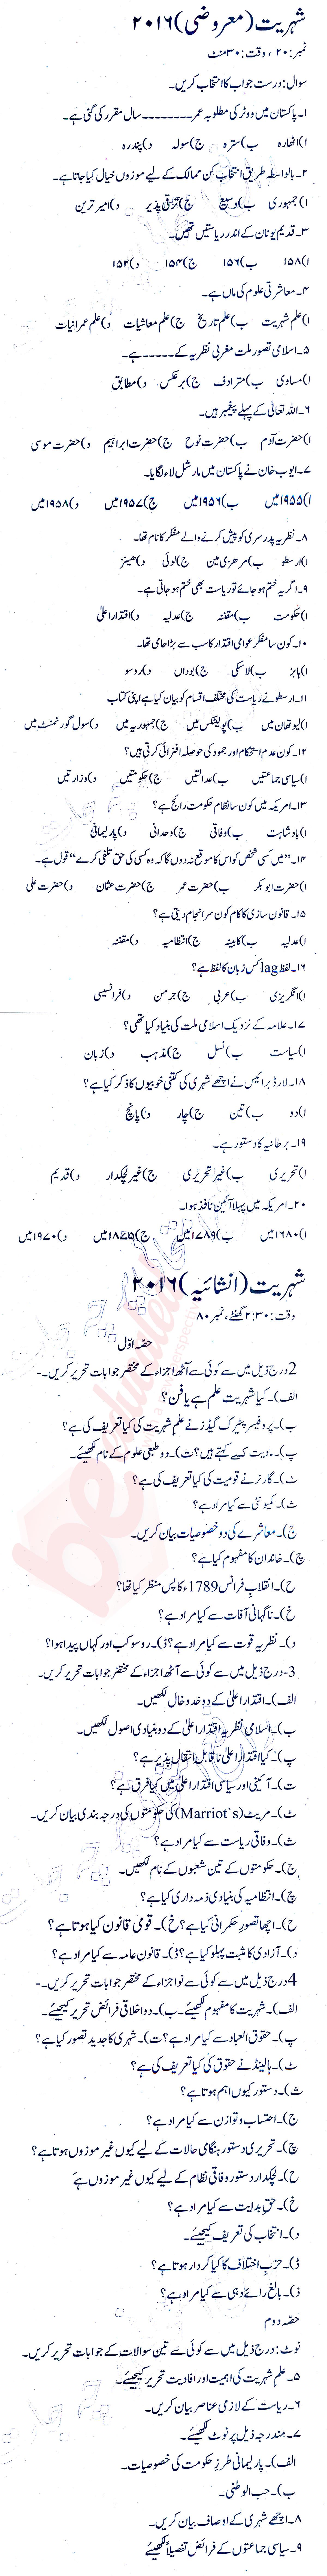 شہریت (معروضی) ۲۰۱۶
نمبر: ۲۰ ، وقت: ۳۰ منٹ
سوال: درست جواب کا انتخاب کریں۔
۱۔ پاکستان میں ووٹر کی مطلوبہ عمر ۔۔۔۔۔۔۔۔ سال مقرر کی گئی ہے۔
ا) اٹھارہ ب) سترہ ج) سولہ د) پندرہ
۲۔ بالواسطہ طریق انتخاب کن ممالک کے لیے موزوں خیال کیا جاتا ہے۔
ا) جمہوری ب) وسیع ج) ترقی پذیر د) امیر ترین
۳۔ قدیم یونان کے اندر ریاستیں تھیں۔
ا) ۱۵۸ ب) ۱۵۶ ج) ۱۵۴ د) ۱۵۲
۴۔ معاشرتی علوم کی ماں ہے۔
ا) علم شہریت ب) علم تاریخ ج) علم معاشیات د) علم عمرانیات
۵۔ اسلامی تصور ملت مغربی نظریہ کے ۔۔۔۔۔ ہے۔
ا) مساوی ب) مترادف ج) برعکس د) مطابق
۶۔ اللہ تعالیٰ کے پہلے پیغمبر ہیں۔
ا) حضرت آدم ب) حضرت نوح ج) حضرت ابراہیم د) حضرت موسی
۷۔ ایوب خان نے پاکستان میں مارشل لاء لگایا۔
ا) ۱۹۵۵ میں ب) ۱۹۵۶ میں ج) ۱۹۵۷ میں د) ۱۹۵۸ میں
۸۔ نظریہ پدرسری کو پیش کرنے والے مفکر کا نام تھا۔
ا) ارسطو ب) سر ہنری مین ج) لوئی د) جینز
۹۔ اگر یہ ختم ہو جائے تو ریاست بھی ختم ہو جاتی ہے۔
ا) حکومت ب) مقننہ ج) عدلیہ د) اقتدار اعلیٰ
۱۰۔ کون سا مفکر عوامی اقتدار کا سب سے بڑا حامی تھا۔
ا) ہابز ب) لاسکی ج) بوداں د) روسو
۱۱۔ ارسطو نے ریاست کی مختلف اقسام کو بیان کیا ہے اپنی کتاب
ا) لیوتھان میں ب) پولیٹکس میں ج) جمہوریہ میں د) سول گورنمنٹ میں
۱۲۔ کون عدم استحکام اور جمود کی حوصلہ افزائی کرتی ہیں؟
ا) سیاسی جماعتیں ب) عدالتیں ج) حکومتیں د) وزارتیں
۱۳۔ امریکہ میں کون سا نظام حکومت رائج ہے؟
ا) بادشاہت ب) وفاقی ج) وحدانی د) پارلیمانی
۱۴۔ "میں کسی شخص کو اس کا موقع نہ دوں گا کہ وہ کسی کی حق تلفی کرے" قول ہے۔
ا) حضرت ابوبکر ب) حضرت عمر ج) حضرت عثمان د) حضرت علی
۱۵۔ قانون سازی کا کام کون سرانجام دیتی ہے؟
ا) عدلیہ ب) کابینہ ج) انتظامیہ د) مقننہ
۱۶۔ لفظ lag کس زبان کا لفظ ہے؟
ا) انگریزی ب) عربی ج) جرمن د) فرانسیسی
۱۷۔ علامہ کے نزدیک اسلامی ملت کی بنیاد کیا تھی؟
ا) سیاست ب) نسل ج) مذہب د) زبان
۱۸۔ لارڈ برائیس نے اچھے شہری کی کتنی خوبیوں کا ذکر کیا ہے؟
ا) دو ب) تین ج) چار د) پانچ
۱۹۔ برطانیہ کا دستور ہے۔
ا) تحریری ب) غیر تحریری ج) غیر لچکدار د) قدیم
۲۰۔ امریکہ میں پہلا آئین نافذ ہوا۔
ا) ۱۶۸۰ میں ب) ۱۷۸۹ میں ج) ۱۸۷۵ میں د) ۱۹۷۰ میں
شہریت (انشائیہ) ۲۰۱۶
وقت: ۲:۳۰ گھنٹے، نمبر ۸۰
حصّہ اوّل
2 درج ذیل میں سے کوئی سے آٹھ اجزاء کے مختصر جوابات تحریر کریں۔
الف)۔ کیا شہریت علم ہے یا فن؟
ب)۔ پروفیسر پیٹرک گیڈز نے علم شہریت کی کیا تعریف کی ہے؟
پ)۔ مادیت کسے کہتے ہیں؟ ت)۔ دو طبعی علوم کے نام لکھیئے۔
ٹ)۔ گارنر نے قومیت کی کیا تعریف کی ہے؟
ث)۔ کمیونٹی سے کیا مراد ہے؟
ج)۔ معاشرے کی دو خصوصیات بیان کریں۔
چ)۔ خاندان کا مفہوم کیا ہے؟
ح)۔ انقلاب فرانس 1789ء کا پس منظر کیا تھا؟
خ)۔ ناگہانی آفات سے کیا مراد ہے؟
د)۔ نظریہ قوت سے کیا مراد ہے؟ ڈ)۔ روسو کب اور کہاں پیدا ہوا؟
3۔ درج ذیل میں سے کوئی سے آٹھ اجزاء کے مختصر جوابات تحریر کریں۔
الف)۔ اقتدار اعلیٰ کے دو خدوخال لکھیں۔
ب)۔ اسلامی نظریہ اقتدار اعلیٰ کے دو بنیادی اصول لکھیں۔
پ)۔ کیا اقتدار اعلیٰ ناقابل انتقال پذیر ہے؟
ت)۔ آئینی اور سیاسی اقتدار اعلیٰ میں کیا فرق ہے؟
ٹ)۔ مریٹ (Marriot`s) کی حکومتوں کی درجہ بندی بیان کریں۔
ث)۔ وفاقی ریاست سے کیا مراد ہے؟
ج)۔ حکومتوں کے تین شعبوں کے نام لکھیں۔
چ)۔ انتظامیہ کی بنیادی ذمہ داری کیا ہے؟
ح)۔ اچھا تصور حکمرانی کیا ہے؟ خ)۔ قومی قانون کیا ہوتا ہے؟
د)۔ آزادی کا مثبت پہلو کیا ہے؟ ڈ)۔ قانون عامہ سے کیا مراد ہے؟
4 درج ذیل میں سے کوئی سے نو اجزاء کے مختصر جوابات تحریر کریں۔
الف)۔ شہریت کا مفہوم لکھیئے۔ ب)۔ دو اخلاقی فرائض تحریر کیجیئے۔
پ)۔ حقوق العباد سے کیا مراد ہے؟ ت)۔ شہری کا جدید تصور کیا ہے؟
ٹ)۔ ہالینڈ نے حقوق کی کیا تعریف کی ہے؟
ث)۔ دستور کیوں اہم ہوتا ہے؟
ج)۔ احتساب و توازن سے کیا مراد ہے؟
چ)۔ تحریری دستور ہنگامی حالات کے لیے کیوں غیر موزوں ہوتا ہے؟
ح)۔ لچکدار دستور وفاقی نظام کے لیے کیوں غیر موزوں ہے
خ)۔ حق ہدایت سے کیا مراد ہے؟
د)۔ انتخاب کی تعریف کیجیئے۔
ڈ)۔ حزب اختلاف کا کیا کردار ہوتا ہے؟
ذ)۔ بالغ رائے دہی سے کیا مراد ہے؟
حصّہ دوم
نوٹ: درج ذیل میں سے کوئی سے تین سوالات کے جوابات تحریر کریں۔
۵۔ علم شہریت کی اہمیت اور افادیت تحریر کیجیئے۔
۶۔ ریاست کے لازمی عناصر بیان کریں۔
۷۔ مندرجہ ذیل پر نوٹ لکھیئے۔
الف)۔ پارلیمانی طرز حکومت کی خصوصیات۔
ب)۔ حب الوطنی۔
۸۔ اچھے شہری کے اوصاف بیان کریں۔
۹۔ سیاسی جماعتوں کے فرائض تفصیلاً لکھیئے